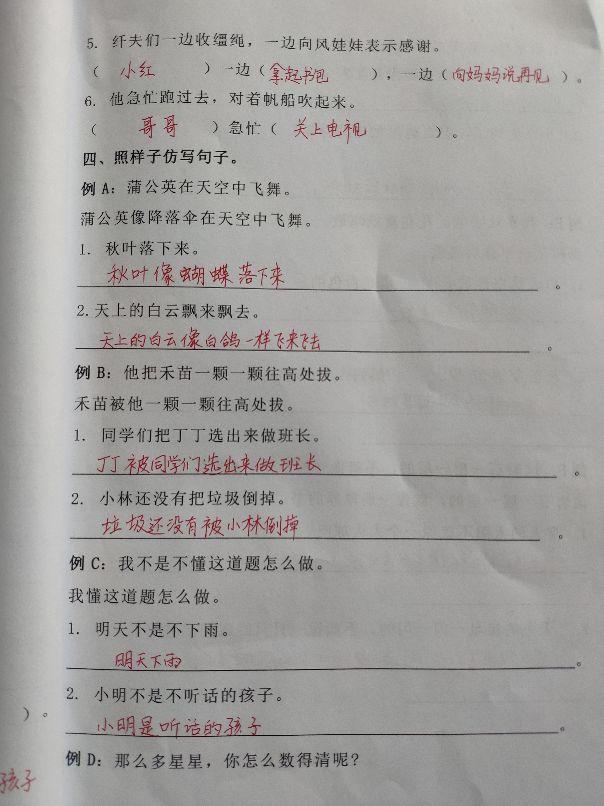 5. 纤夫们一边收缰绳，一边向风娃娃表示感谢。
（ 小红 ）一边（拿起书包 ），一边（向妈妈说再见 ）。
6. 他急忙跑过去，对着帆船吹起来。
（ 哥哥 ）急忙（ 关上电视 ）。
四、照样子仿写句子。
例 A：蒲公英在天空中飞舞。
蒲公英像降落伞在天空中飞舞。
1. 秋叶落下来。
秋叶像蝴蝶落下来。
2.天上的白云飘来飘去。
天上的白云像白鸽一样飞来飞去。
例 B：他把禾苗一颗一颗往高处拔。
禾苗被他一颗一颗往高处拔。
1. 同学们把丁丁选出来做班长。
丁丁被同学们选出来做班长。
2. 小林还没有把垃圾倒掉。
垃圾还没有被小林倒掉。
例 C：我不是不懂这道题怎么做。
我懂这道题怎么做。
1. 明天不是不下雨。
明天下雨。
2. 小明不是不听话的孩子。
）。
小明是听话的孩子。
例 D：那么多星星，你怎么数得清呢？
孩子